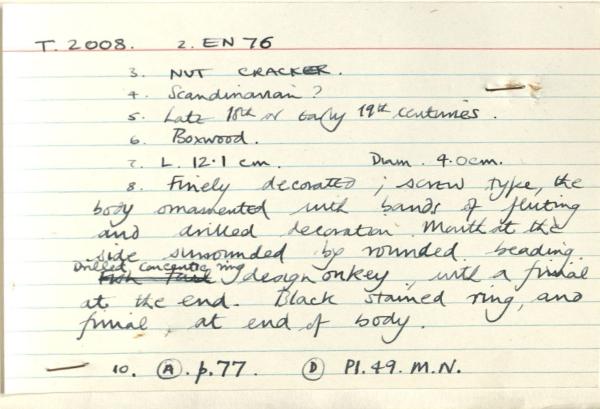 T. 2008. 2. EN 76
3. NUT CRACKER.
4. Scandinavian?
5. Late 18th or Early 19th centuries.
6. Boxwood.
7. L. 12.1 cm. Diam. 4.0cm.
8. Finely decorated; screw type, the
body ornamented with bands of fluting
and drilled decoration. Mouth at the
side surrounded by rounded beading.
Drilled concentric ring
design on key, with a finial
at the end. Black stained ring, and
finial, at end of body.
10. (A). p.77. (D) Pl.49. M.N.